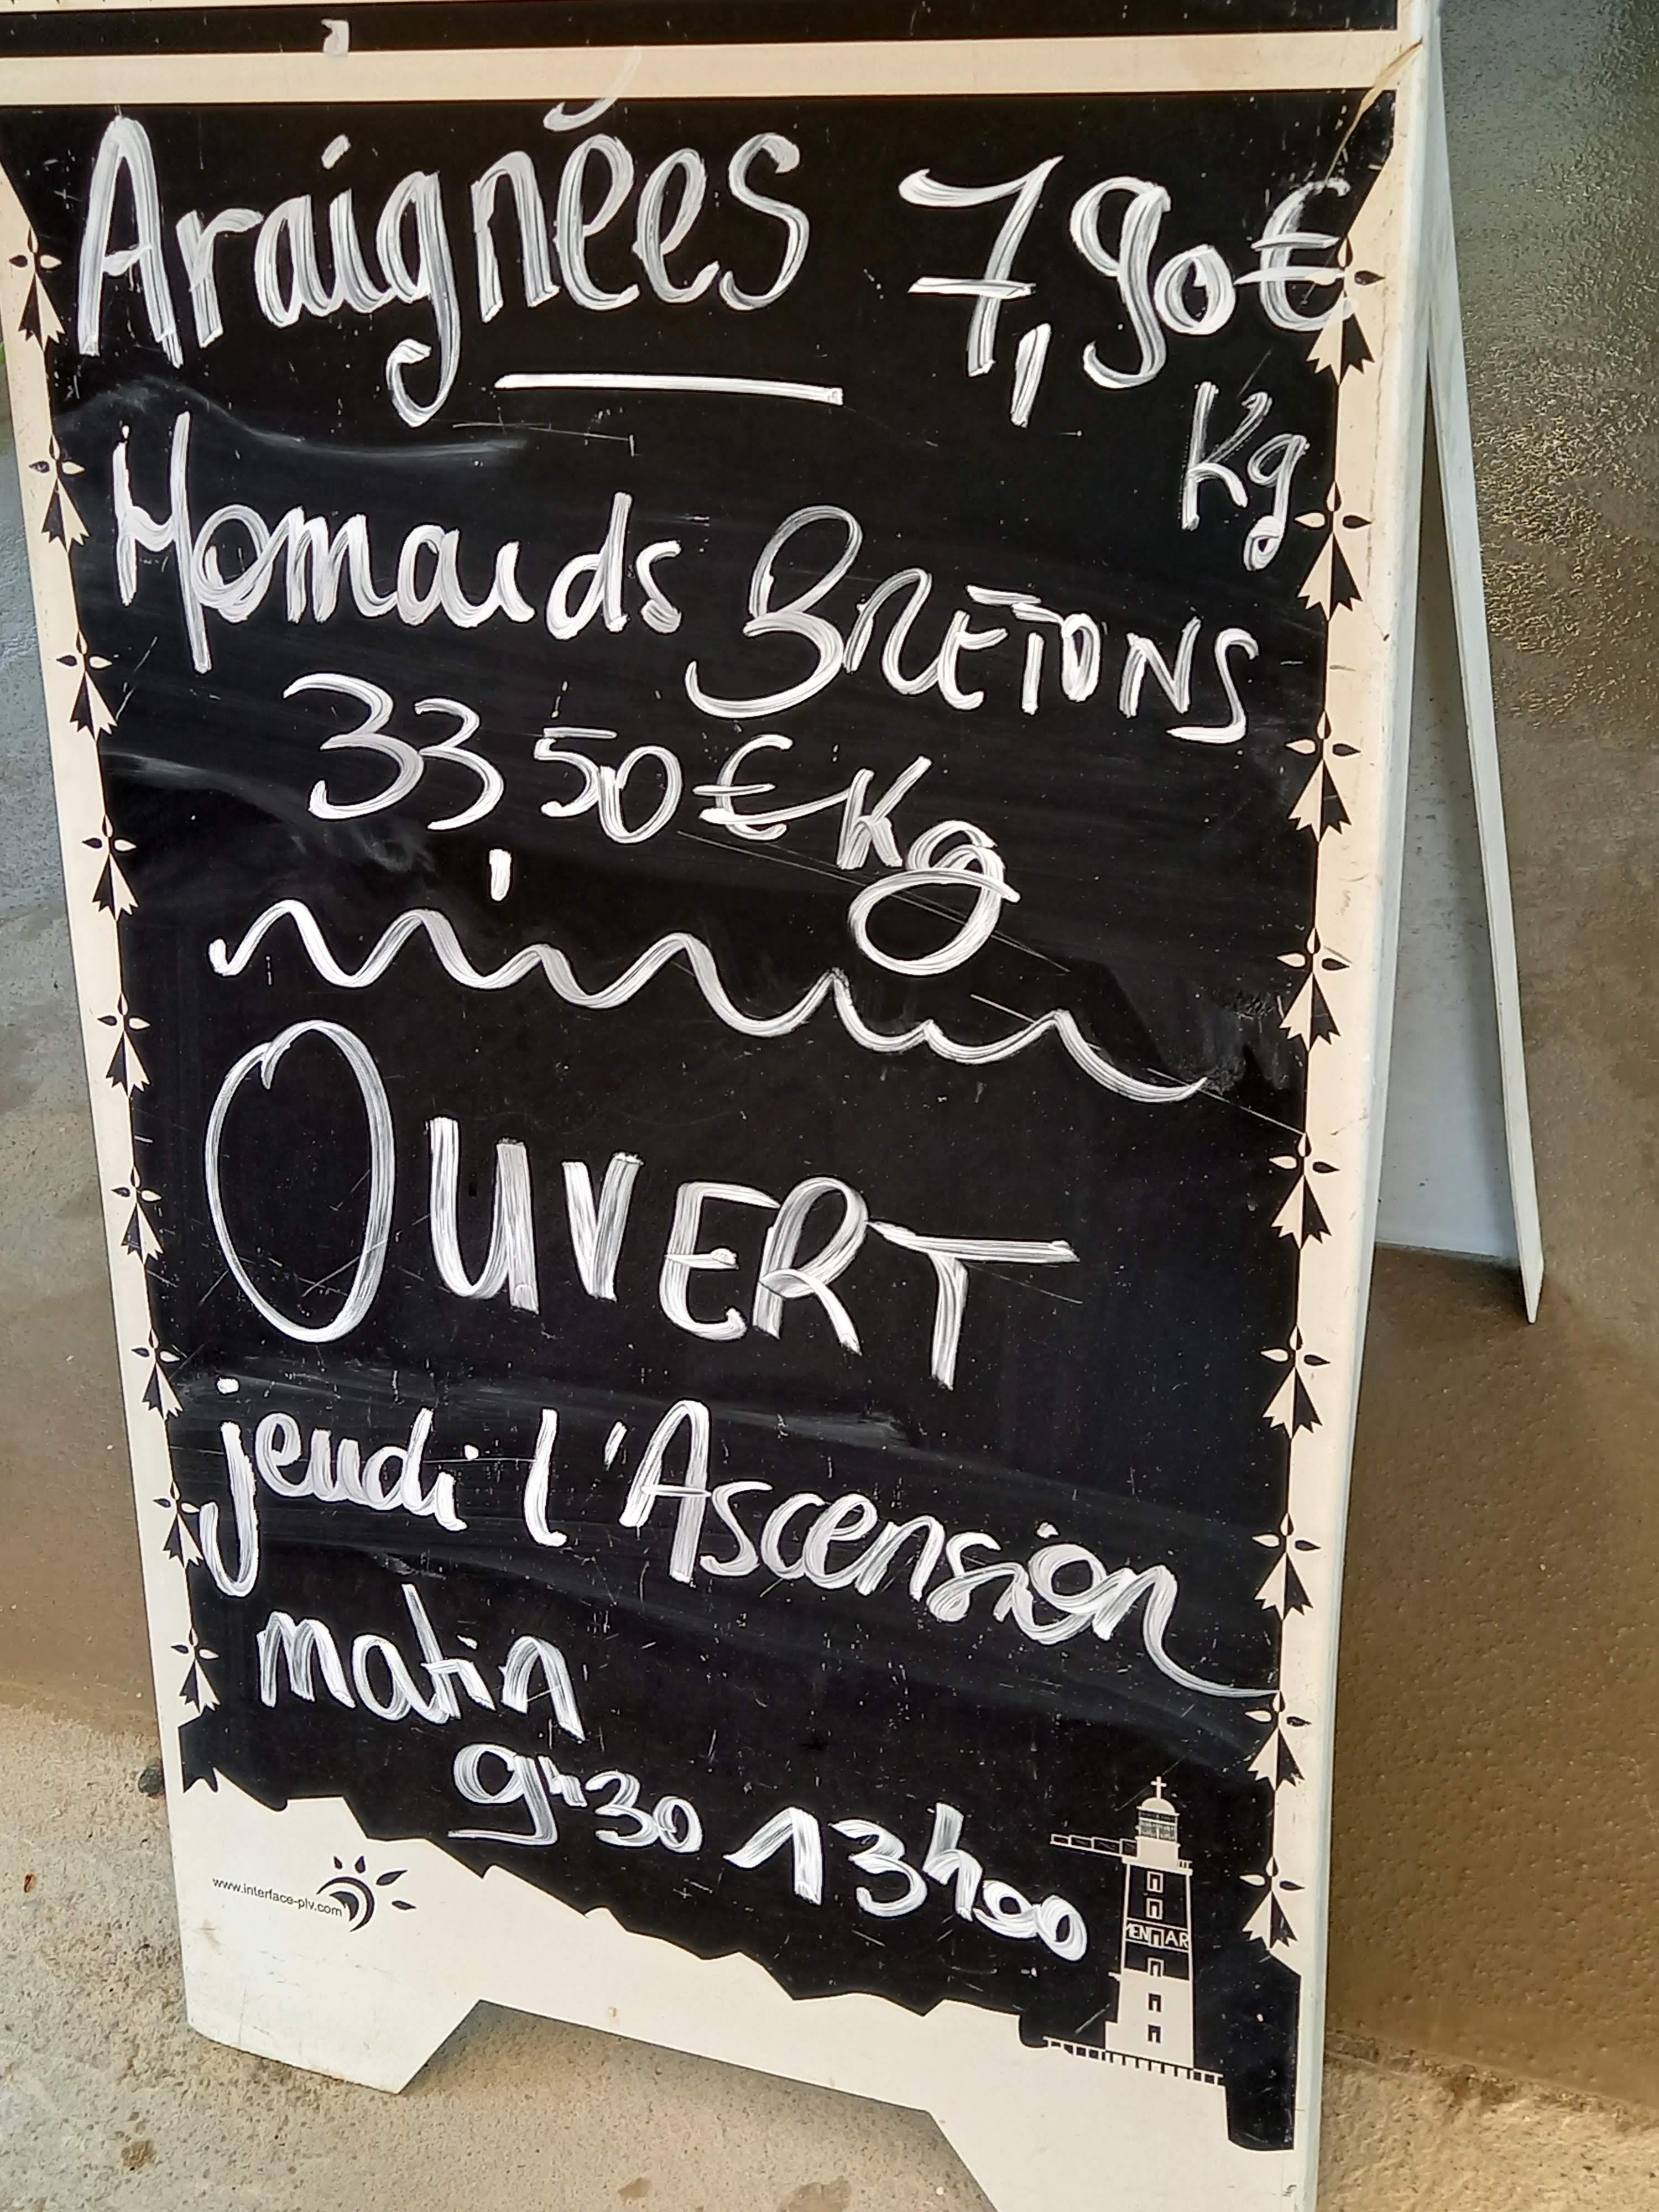 Araignées 7,90€
Kg
Homards BRETONS
33 50 € Kg
OUVERT
jeudi l'Ascension
matin
9h30 13h00
www.interface-plv.com